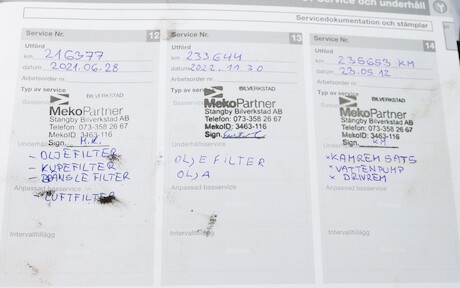 Service och underhåll
Servicedokumentation och stämplar
Service Nr. 12
Utförd
km 216377
datum 2021.06.28
Arbetsorder nr.
Typ av service
BILVERKSTAD
MekoPartner
Stångby Bilverkstad AB
Telefon: 073-358 26 67
MekoID: 3463-116
Sign. M.K.
- OLJEFILTER
- KUPEFILTER
- BÄNSLEFILTER
LUFTFILTER
Intervalltillägg
Service Nr. 13
Utförd
km 233644
datum 2022.11.30
Arbetsorder nr.
Typ av service
BILVERKSTAD
MekoPartner
Stångby Bilverkstad AB
Telefon: 073-358 26 67
MekoID: 3463-116
Sign.
Underhåll
OLJEFILTER
OLJA
Anpassad basservice
Intervalltillägg
Service Nr. 14
Utförd
km 235653 KM
datum 23.05.12
Arbetsorder nr.
Typ av service
BILVERKSTAD
MekoPartner
Stångby Bilverkstad AB
Telefon: 073-358 26 67
MekoID: 3463-116
Sign. KM
* KAMREMSATS
* VATTENPUMP
* DRIVREM
Anpassad basservice
Intervalltillägg